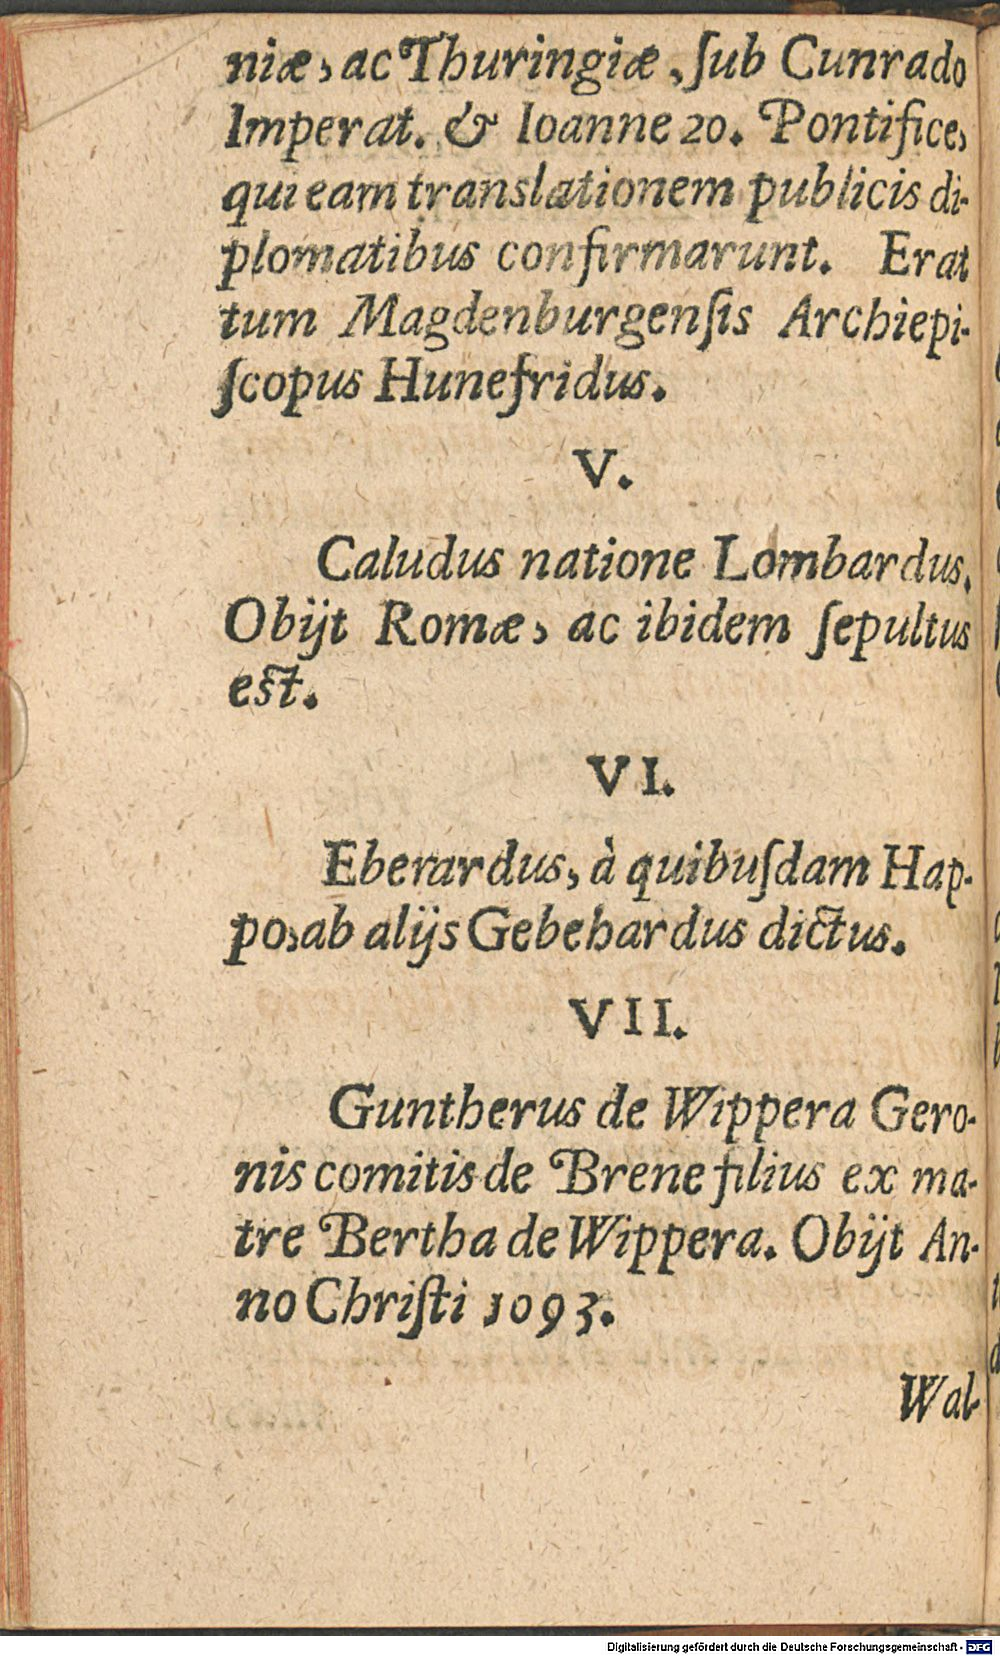 niæ, ac Thuringiæ, ſub Cunrado
Imperat. & Ioanne 20. Pontifice,
qui eam translationem publicis di-
plomatibus confirmarunt. Erat
tum Magdenburgenſis Archiepi-
ſcopus Hunefridus.
V.
Caludus natione Lombardus.
Obijt Romæ, ac ibidem ſepultus
est.
VI.
Eberardus, à quibuſdam Hap-
po, ab alijs Gebehardus dictus.
VII.
Guntherus de Wippera Gero-
nis comitis de Brene filius ex ma-
tre Bertha de Wippera. Obijt An-
no Chriſti 1093.
Wal-
Digitalisierung gefördert durch die Deutsche Forschungsgemeinschaft - DFG